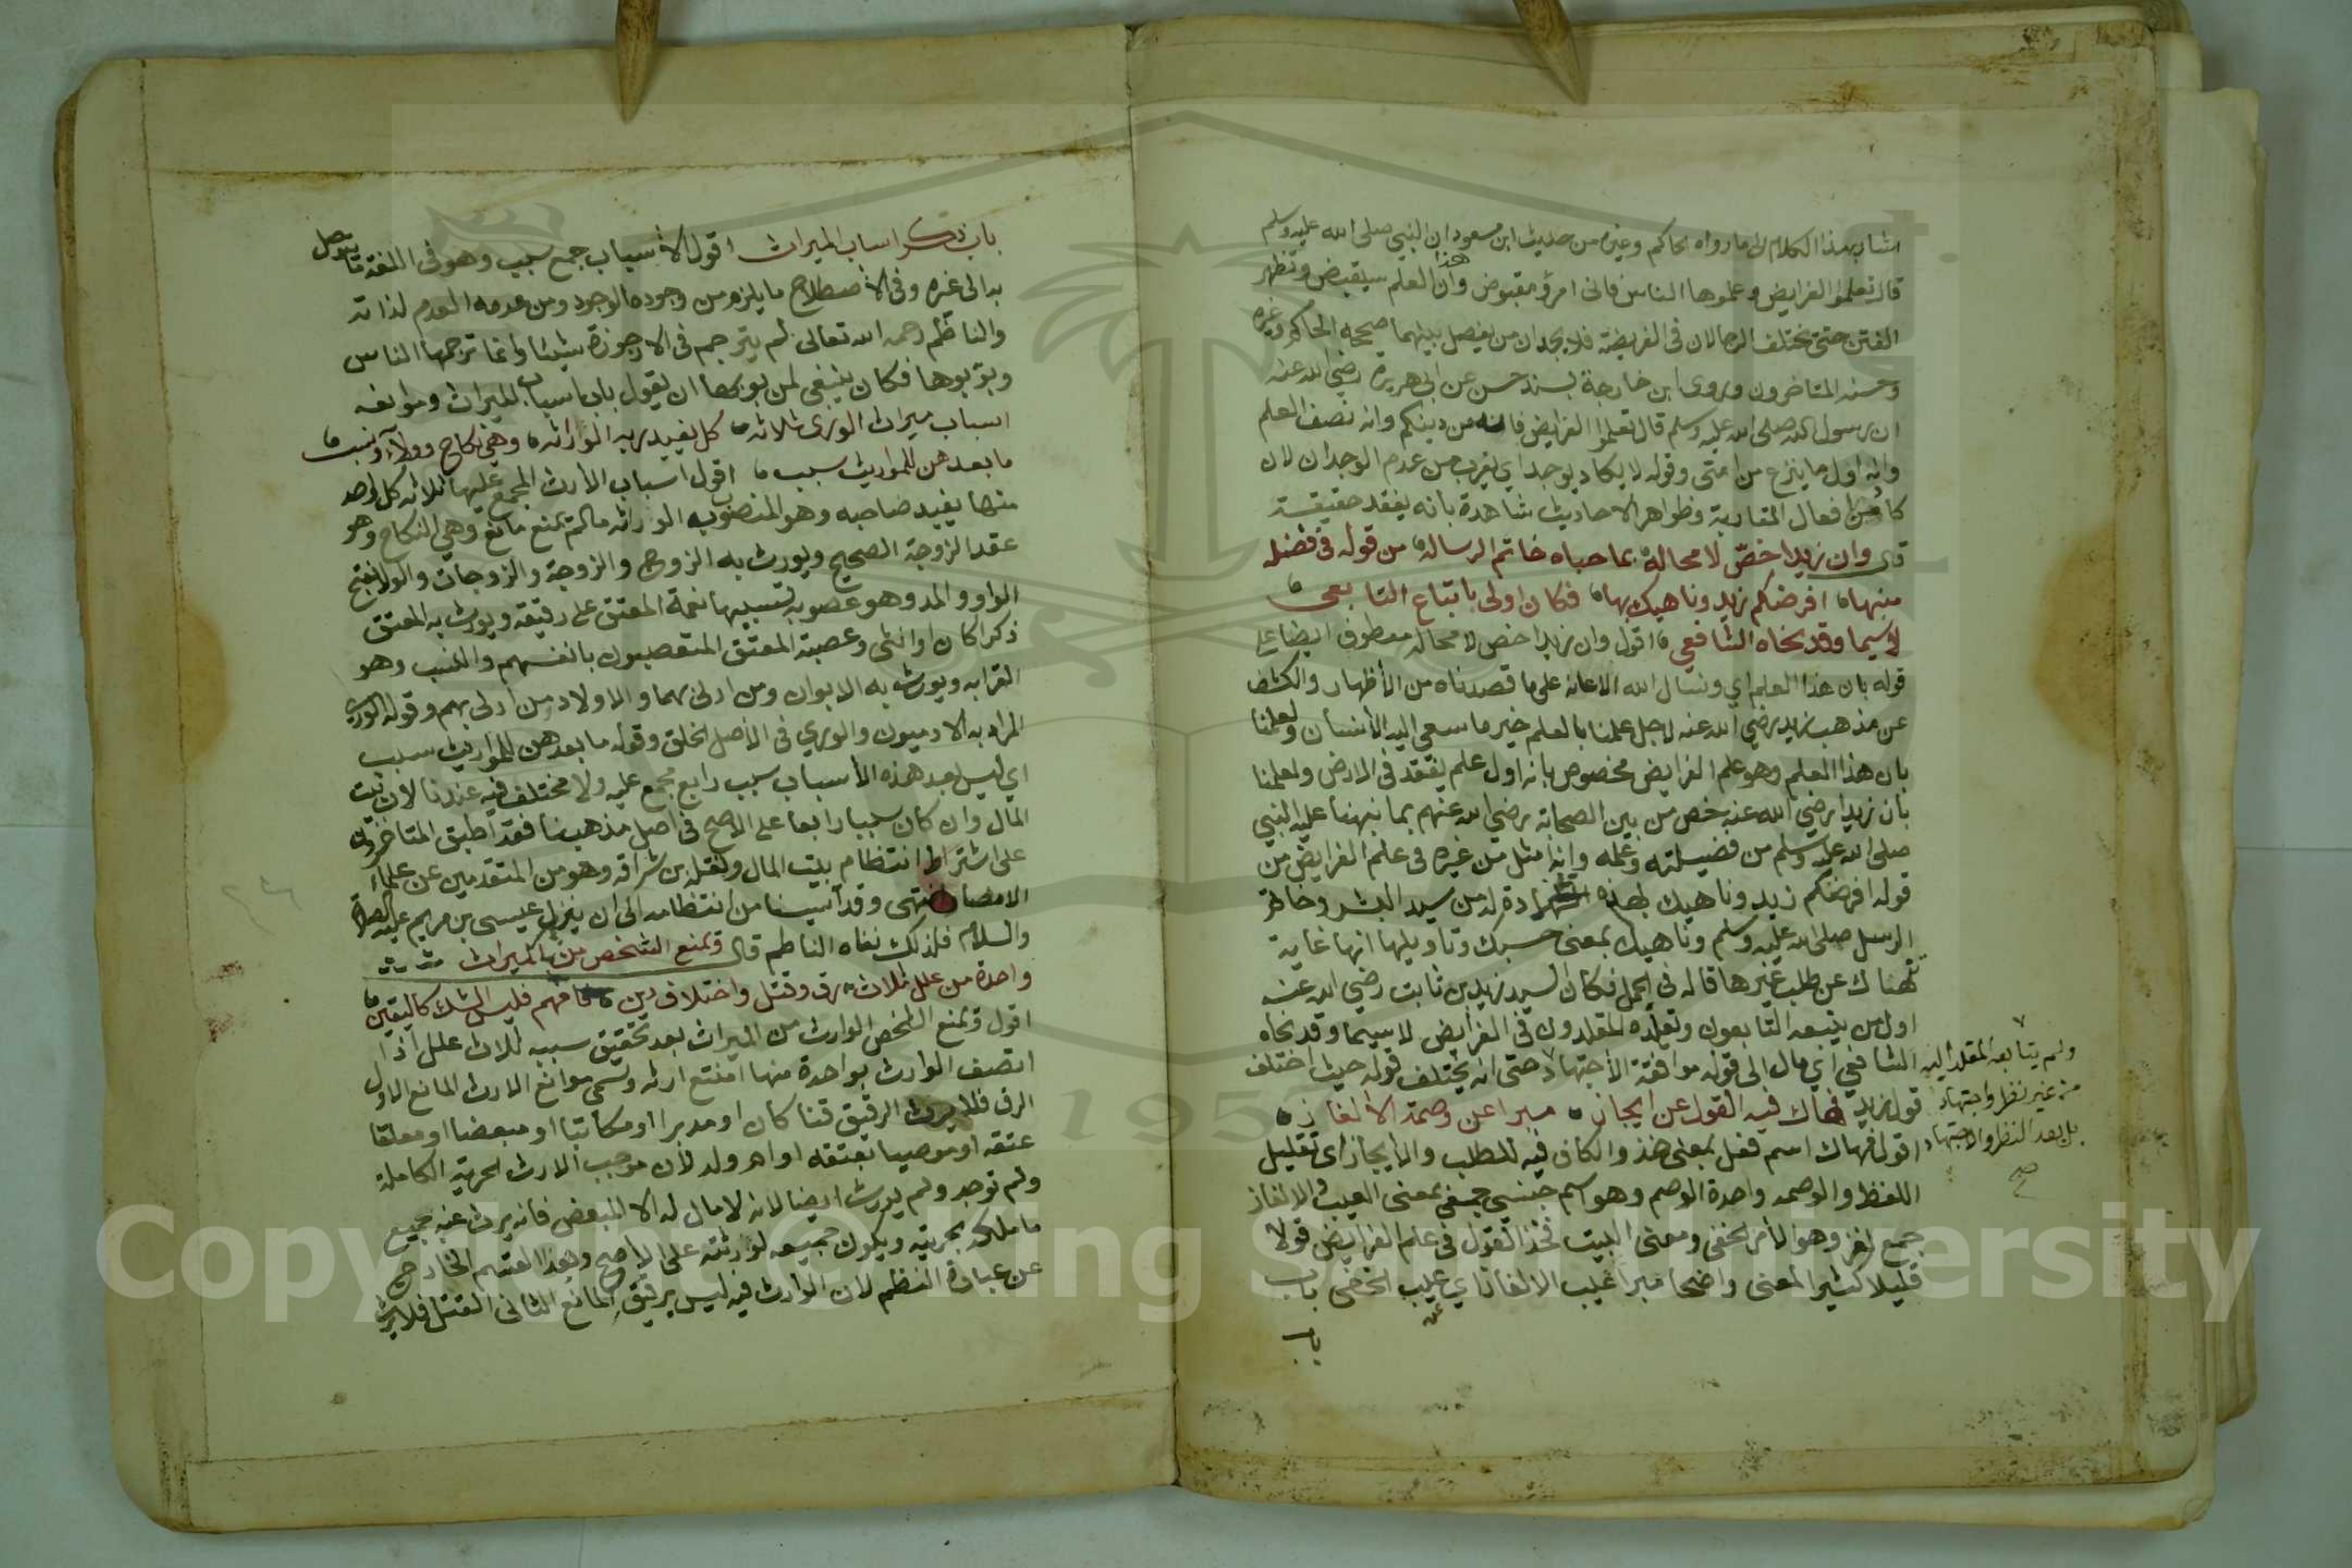 اشار بهذا الكلام الى ما رواه الحاكم وغيره من حديث ابن مسعود ان النبي صلى الله عليه وسلم
قال تعلموا الفرايض وعلموها الناس فاني امرؤ مقبوض وان هذا العلم سيقبض وتظهر
الفتن حتى يختلف الرجلان في الفريضة فلا يجدان من يفصل بينهما صححه الحاكم وغيره
وحسنه المتاخرون وروى ابن خارجة بسند حسن عن ابي هريرة رضي الله عنه
ان رسول الله صلى الله عليه وسلم قال تعلموا الفرايض فانه من دينكم وانه نصف العلم
وانه اول ما ينزع من امتي وقوله لا يكاد يوجد اي يقرب من عدم الوجدان لان
كاد من افعال المقاربة وظواهر الاحاديث شاهدة بانه يفقد حقيقة
قال وان زيدا خصّ لا محاله بما حباه خاتم الرساله من قوله في فضله
منبها افرضكم زيد وناهيك بها فكان اولى باتباع التابعي
لا سيما وقد نحاه الشافعي اقول وان زيدا خص لا محاله معطوف ايضا على
قوله بان هذا العلم اي ونسال الله الاعانه على ما قصدناه من الأظهار والكشف
عن مذهب زيد رضي الله عنه لاجل علمنا بالعلم خير ما سعى اليه الأنسان ولعلمنا
بان هذا العلم وهو علم الفرايض مخصوص بانه اول علم يفقد في الارض ولعلمنا
بان زيدا رضي الله عنه خص من بين الصحابة رضي الله عنهم بما نبهنا عليه النبي
صلى الله عليه وسلم من فضيلته وعلمه وانه امثل من غيره في علم الفرايض من
قوله افرضكم زيد وناهيك بهذه الشهادة له من سيد البشر وخاتم
الرسل صلى الله عليه وسلم وناهيك بمعنى حسبك وتاويلها انها غاية
تنهاك عن طلب غيرها قاله في المجمل فكان السيد زيد بن ثابت رضي الله عنه
اولى من يتبعه التابعون وتقلده المقلدون في الفرايض لا سيما وقد نحاه
الشافعي اي مال الى قوله موافقة الأجتهاد حتى انه يختلف قوله حيث اختلف
ولم يتابعه المقلد اليه
من غير نظر واجتهاد
بل بعد النظر والاجتهاد
صح
قول زيد فهاك فيه القول عن ايجاز مبرا عن وصمة الالغاز
اقول فهاك اسم فعل بمعنى خذ والكاف فيه للطلب والايجاز اي تقليل
اللفظ والوصمه واحدة الوصم وهو اسم جنسي جمعي بمعنى العيب والالغاز
جمع لغز وهو الأمر الخفي ومعنى البيت فخذ القول في علم الفرايض قولا
قليلا كثير المعنى واضحا مبرا عن عيب الالغاز اي عيب الخفى باب
باب
باب ذكر اسباب الميراث اقول الأسباب جمع سبب وهو في اللغة ما يتوصل
به الى غيره وفي الأصطلاح ما يلزم من وجوده الوجود ومن عدمه العدم لذاته
والناظم رحمه الله تعالى لم يترجم في الارجوزة شيئا وانما ترجمها الناس
وبوّبوها فكان ينبغي لمن بوبها ان يقول باب اسباب الميراث وموانعه
اسباب ميراث الورى ثلاثه كل يفيد ربه الوراثه وهي نكاح وولاء ونسب
ما بعدهن للمواريث سبب اقول اسباب الأرث المجمع عليها ثلاثه كل واحد
منها يفيد صاحبه وهو المنصوب به الوراثه ما لم يمنع مانع وهي النكاح وهو
عقد الزوجة الصحيح ويورث به الزوج والزوجة والزوجات والولا بفتح
الواو والمد وهو عصوبه تسببها نعمة المعتق على رقيقه ويورث به المعتق
ذكرا كان او انثى وعصبة المعتق المتعصبون بانفسهم والنسب وهو
القرابه ويورث به الابوان ومن ادلى بهما والاولاد ومن ادلى بهم وقوله الورى
المراد به الادميون والورى في الأصل الخلق وقوله ما بعدهن للمواريث سبب
اي ليس بعد هذه الأسباب سبب رابع مجمع عليه ولا مختلف فيه عندنا لان بيت
المال وان كان سببا رابعا على الاصح في اصل مذهبنا فقد اطبق المتاخرون
على اشتراط انتظام بيت المال ونقله بن سراقه وهو من المتقدمين عن علماء
الامصار انتهى وقد آيسنا من انتظامه الى ان ينزل عيسى بن مريم عليه الصلاة
والسلام فلذلك نفاه الناظم قال ويمنع الشخص من الميراث
واحدة من علل ثلاث رق وقتل واختلاف دين فافهم فليس الشك كاليقين
اقول ويمنع الشخص الوارث من الميراث بعد تحقيق سببه ثلاث علل اذا
اتصف الوارث بواحدة منها امتنع ارثه وتسمى موانع الارث المانع الاول
الرق فلا يرث الرقيق قنا كان او مدبرا او مكاتبا او مبعضا او معلقا
عتقه او موصيا بعتقه او ام ولد لأن موجب الارث الحرية الكاملة
ولم توجد ولم يورث ايضا لانه لا مال له الا المبعض فانه يرث عنه جميع
ما ملكه بحريته ويكون جميعه لورثته على الاصح وهذا القسم الخارج
عن عبارة النظم لان الوارث فيه ليس برقيق المانع الثاني القتل فلا يرث
1957
Copyright © King Saud University